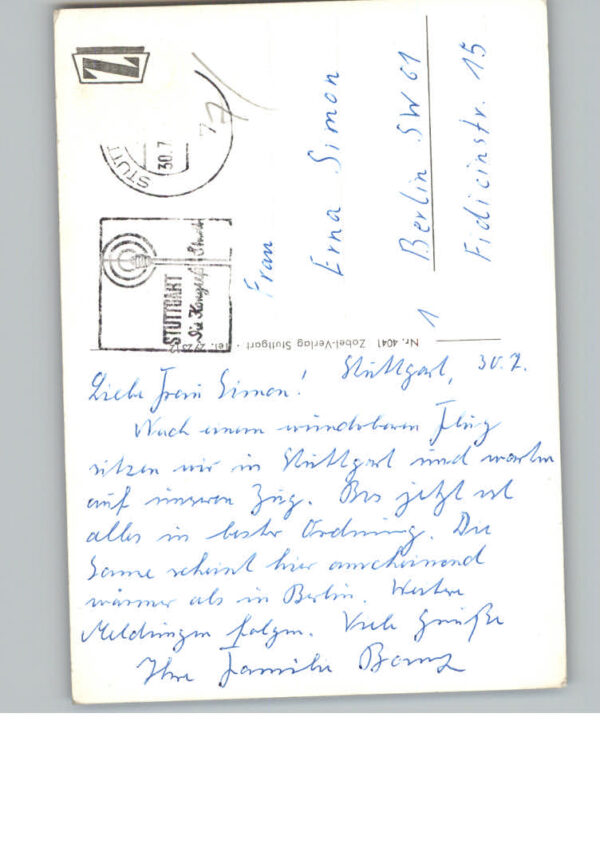 Stuttgart, 30.7.
Liebe Frau Simon!
Nach einem wunderbaren Flug
sitzen wir in Stuttgart und warten
auf unseren Zug. Bis jetzt ist
alles in bester Ordnung. Die
Sonne scheint hier anscheinend
wärmer als in Berlin. Weitere
Meldungen folgen. Viele Grüße
Ihre Familie
Frau
Erna Simon
1 Berlin SW 61
Fidicinstr. 15
Nr. 4041 Zobel-Verlag Stuttgart · Tel. 29 23 12
Z
STUTT
30.7
77
STUTTGART
Die Kongreß-Stadt